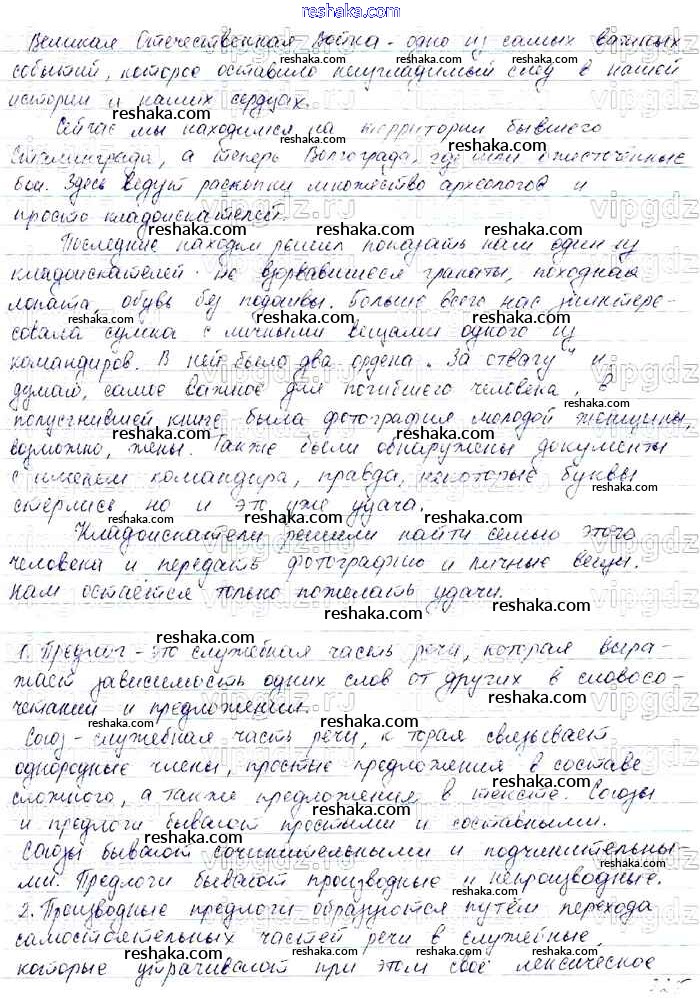 reshaka.com
Великая Отечественная Война - одно из самых важных
событий, которое оставило неизгладимый след в нашей
истории и наших сердцах.
Сейчас мы находимся на территории бывшего
Сталинграда, а теперь Волгограда, где шли ожесточённые
бои. Здесь ведут раскопки множество археологов и
просто кладоискателей.
Последние находки решил показать нам один из
кладоискателей: не взорвавшиеся гранаты, походная
лопата, обувь без подошвы. Больше всего нас заинтере-
совала сумка с личными вещами одного из
командиров. В ней было два ордена "За отвагу" и
думаю, самое важное для погибшего человека, в
полусгнившей книге была фотография молодой женщины,
возможно, жены. Также были обнаружены документы
с именем командира, правда, некоторые буквы
стёрлись, но и это уже удача.
Кладоискатели решили найти семью этого
человека и передать фотографию и личные вещи.
Нам остаётся только пожелать удачи.
1. Предлог - это служебная часть речи, которая выра-
жает зависимость одних слов от других в словосо-
четании и предложении.
Союз - служебная часть речи, которая связывает
однородные члены, простые предложения в составе
сложного, а также предложения в тексте. Союзы
и предлоги бывают простыми и составными.
Союзы бывают сочинительными и подчинительны-
ми. Предлоги бывают производные и непроизводные.
2. Производные предлоги образуются путём перехода
самостоятельных частей речи в служебные,
которые утрачивают при этом своё лексическое